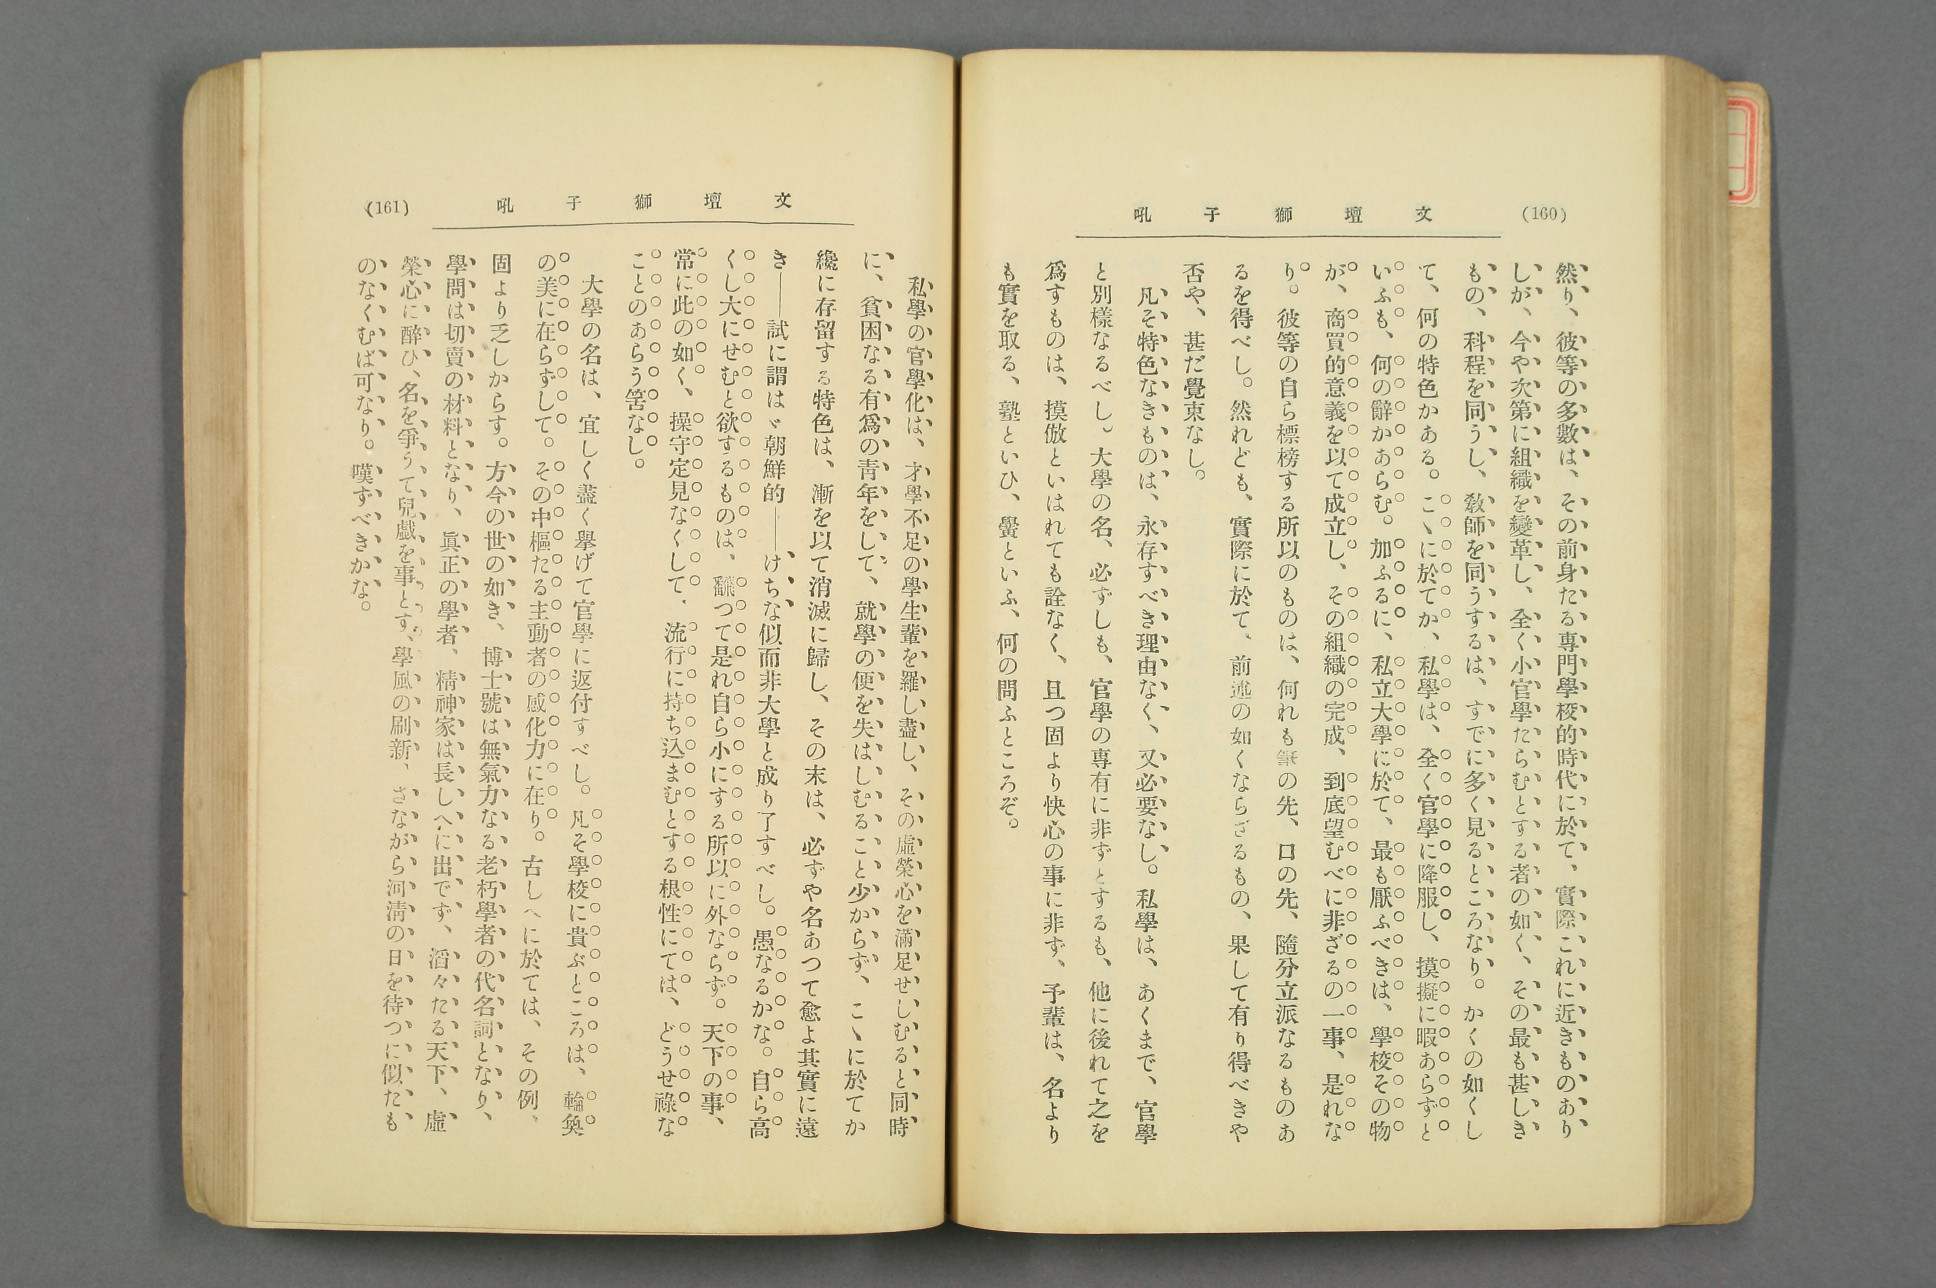 (160)
文壇獅子吼
然り、彼等の多數は、その前身たる專門學校的時代に於て、實際これに近きものあり
しが、今や次第に組織を變革し、全く小官學たらむとする者の如く、その最も甚しき
もの、科程を同うし、敎師を同うするは、すでに多く見るところなり。かくの如くし
て、何の特色かある。こゝに於てか、私學は、全く官學に降服し、摸擬に暇あらずと
いふも、何の辭かあらむ。加ふるに、私立大學に於て、最も厭ふべきは、學校その物
が、商買的意義を以て成立し、その組織の完成、到底望むべに非ざるの一事、是れな
り。彼等の自ら標榜する所以のものは、何れも筆の先、口の先、隨分立派なるものあ
るを得べし。然れども、實際に於て、前述の如くならざるもの、果して有り得べきや
否や、甚だ覺束なし。
凡そ特色なきものは、永存すべき理由なく、又必要なし。私學は、あくまで、官學
と別樣なるべし。大學の名、必ずしも、官學の專有に非ずとするも、他に後れて之を
爲すものは、摸倣といはれても詮なく、且つ固より快心の事に非ず、予輩は、名より
も實を取る、塾といひ、黌といふ、何の問ふところぞ。
(161)
文壇獅子吼
私學の官學化は、才學不足の學生輩を羅し盡し、その虛榮心を滿足せしむると同時
に、貧困なる有爲の靑年をして、就學の便を失はしむること少からず、こゝに於てか
纔に存留する特色は、漸を以て消滅に歸し、その末は、必ずや名あつて愈よ其實に遠
き――試に謂はゞ朝鮮的――けちな似而非大學と成り了すべし。愚なるかな。自ら高
くし大にせむと欲するものは、飜つて是れ自ら小にする所以に外ならず。天下の事、
常に此の如く、操守定見なくして、流行に持ち込まむとする根性にては、どうせ祿な
ことのあらう筈なし。
大學の名は、宜しく盡く擧げて官學に返付すべし。凡そ學校に貴ぶところは、輪奐
の美に在らずして。その中樞たる主動者の感化力に在り。古しへに於ては、その例、
固より乏しからす。方今の世の如き、博士號は無氣力なる老朽學者の代名詞となり、
學問は切賣の材料となり、眞正の學者、精神家は長しへに出でず、滔々たる天下、虛
榮心に醉ひ、名を爭うて兒戲を事とす、學風の刷新、さながら河淸の日を待つに似たも
のなくむば可なり。嘆ずべきかな。